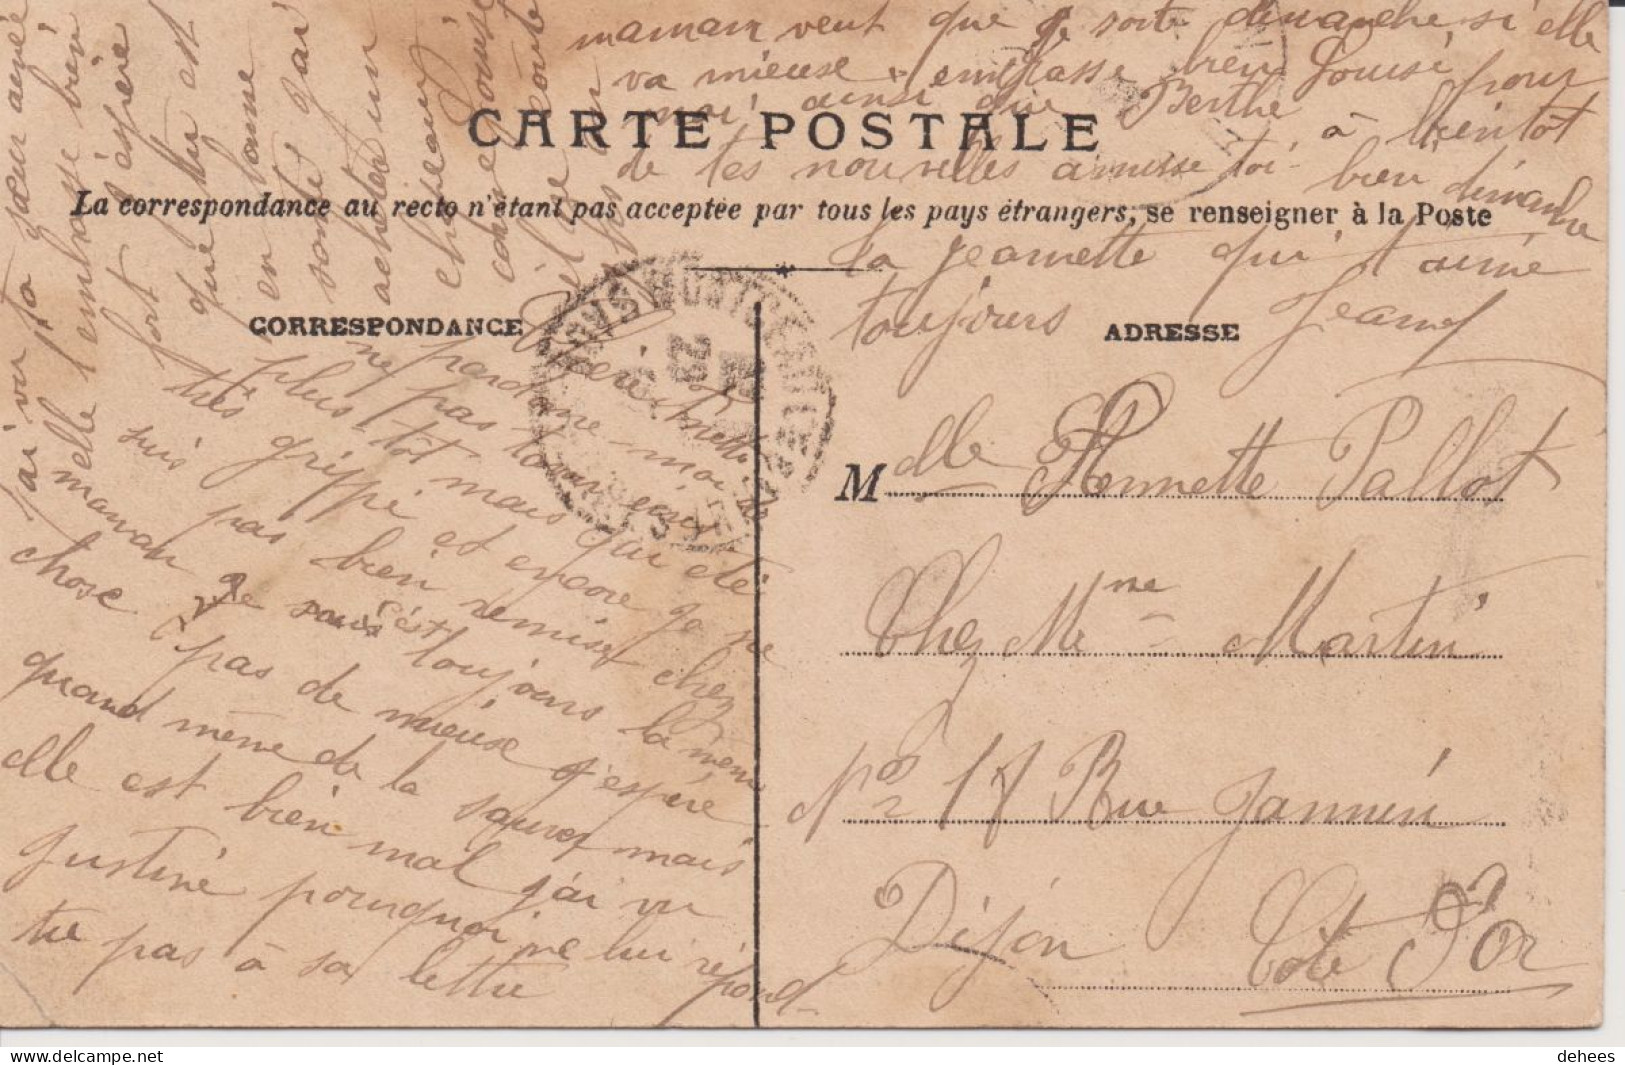 maman veut que je sorte dimanche, si elle
va mieuse, embrasse bien Louise pour
moi ainsi que Berthe à bientôt
de tes nouvelles amusse toi bien dimanche
ta Jeannette qui t'aime
toujours Jeanne
CARTE POSTALE
La correspondance au recto n'étant pas acceptée par tous les pays étrangers, se renseigner à la Poste
CORRESPONDANCE
ADRESSE
Cherie
pardonne moi de
ne pas
plus tôt mais j'ai été
très grippé et encore je ne
suis pas bien remise chez
maman c'est toujours la même
chose pas de mieuse j'espère
quand même de la sauver mais
elle est bien mal j'ai vu
Justine pourquoi ne lui répond
tu pas à sa lettre
j'ai vu ta sœur aimé
elle t'embrasse bien
j'espère
fort
que tu est
en bonne
santé j'ai
acheter un
chapeau
M dlle Hennette Pallot
Chez Mme Martin
No 17 Rue Jannin
Dijon Cote d'Or
dehees